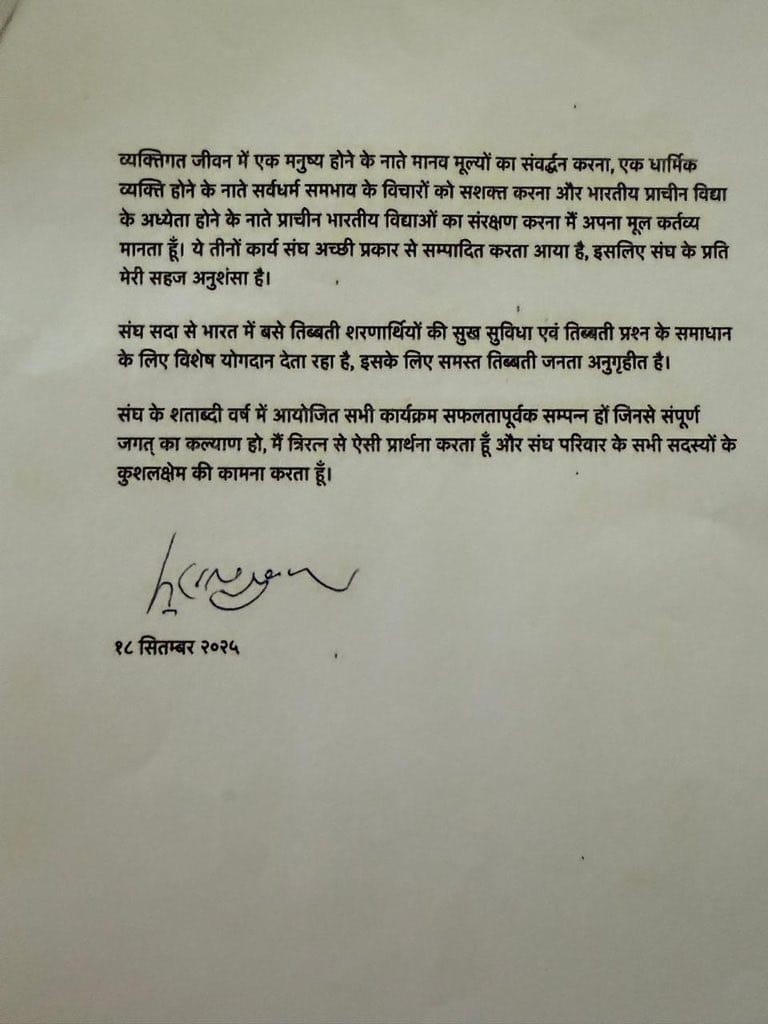 व्यक्तिगत जीवन में एक मनुष्य होने के नाते मानव मूल्यों का संवर्द्धन करना, एक धार्मिक
व्यक्ति होने के नाते सर्वधर्म समभाव के विचारों को सशक्त करना और भारतीय प्राचीन विद्या
के अध्येता होने के नाते प्राचीन भारतीय विद्याओं का संरक्षण करना मैं अपना मूल कर्तव्य
मानता हूँ। ये तीनों कार्य संघ अच्छी प्रकार से सम्पादित करता आया है, इसलिए संघ के प्रति
मेरी सहज अनुशंसा है।
संघ सदा से भारत में बसे तिब्बती शरणार्थियों की सुख सुविधा एवं तिब्बती प्रश्न के समाधान
के लिए विशेष योगदान देता रहा है, इसके लिए समस्त तिब्बती जनता अनुगृहीत है।
संघ के शताब्दी वर्ष में आयोजित सभी कार्यक्रम सफलतापूर्वक सम्पन्न हों जिनसे संपूर्ण
जगत् का कल्याण हो, मैं त्रिरत्न से ऐसी प्रार्थना करता हूँ और संघ परिवार के सभी सदस्यों के
कुशलक्षेम की कामना करता हूँ।
१८ सितम्बर २०२५